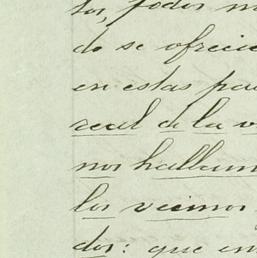 tos, todos
do se ofrecie
en estas pa
real de la v
nos hallam
los vecinos
dos: que en